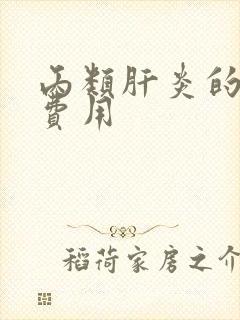 丙類肝炎的
費用
稻荷家房之介